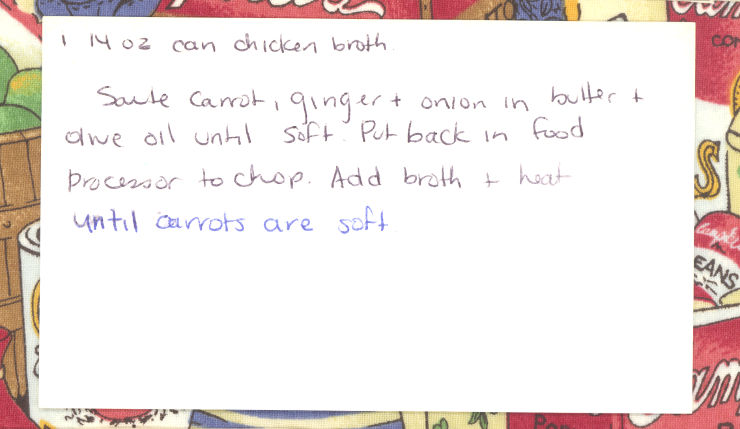 1 14 oz can chicken broth.
Saute Carrot, ginger + onion in butter +
olive oil until soft. Put back in food
processor to chop. Add broth + heat
until carrots are soft.
COR
S
Campbell
EANS